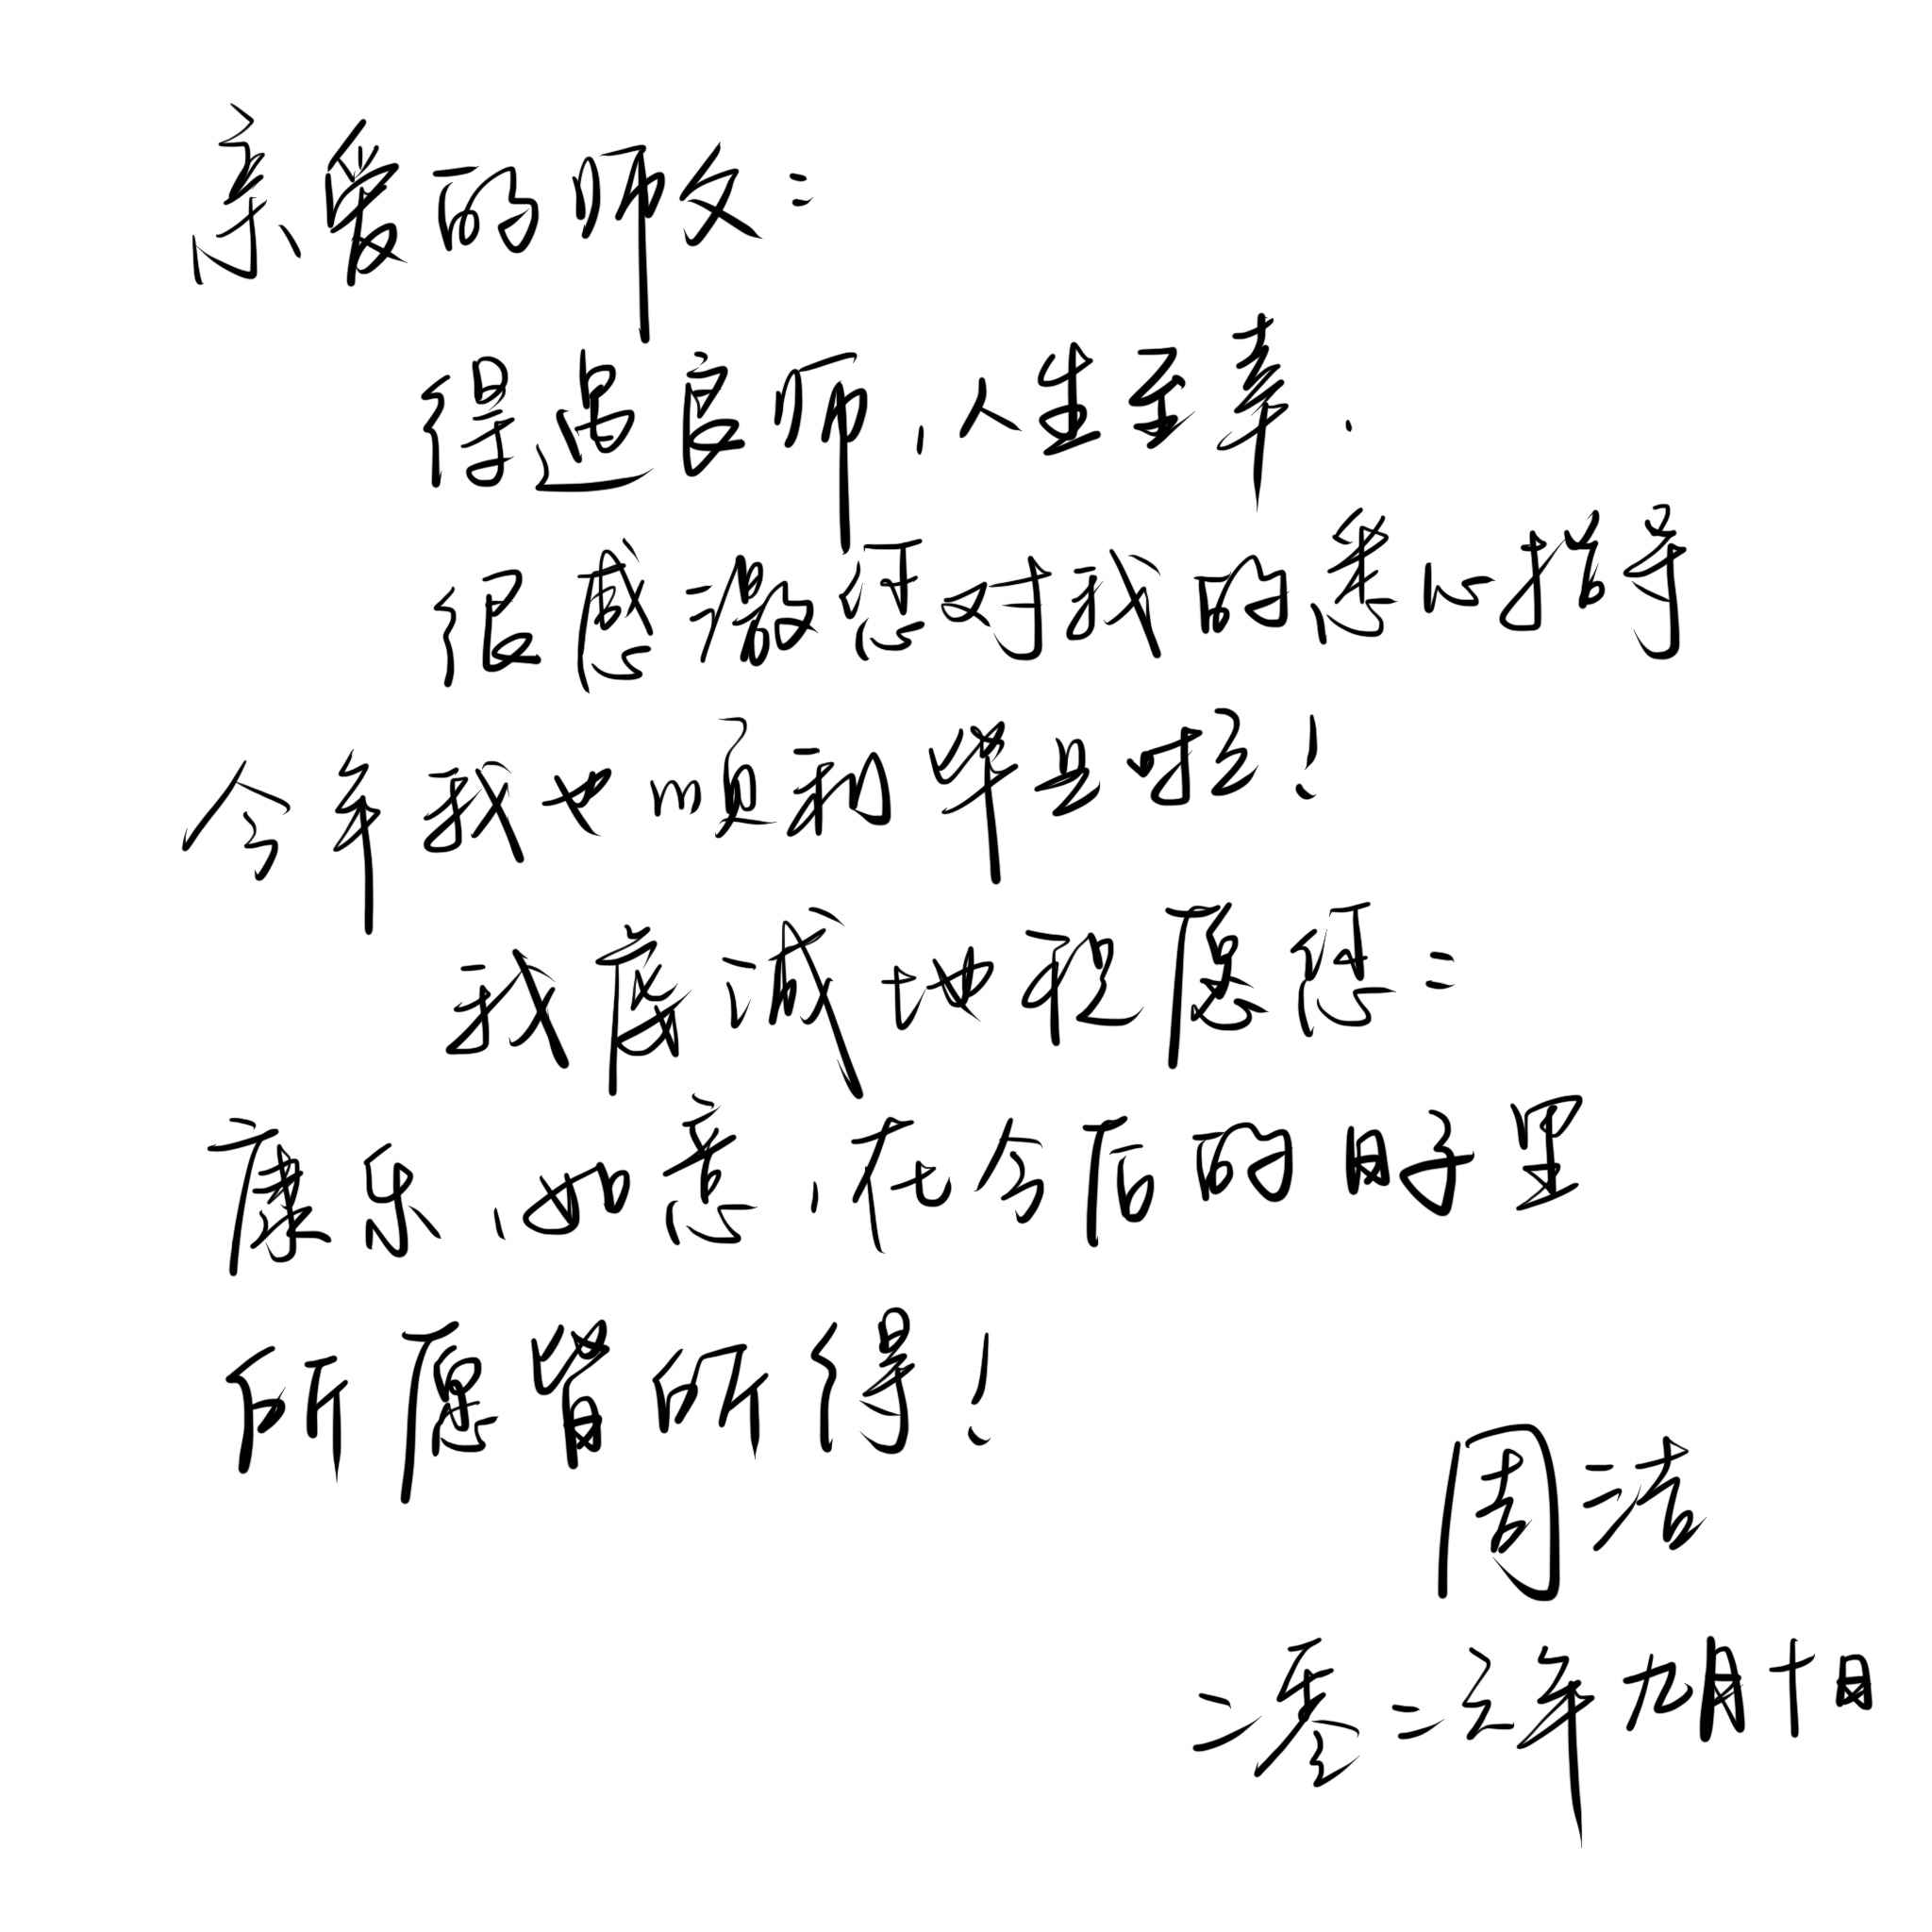 亲爱的师父：
得遇良师，人生至幸．
很感激您对我的悉心指导
今年我也顺利毕业啦！
我虔诚地祝愿您：
康乐、如意，在今后的日子里
所愿皆所得！
周洁
二零二三年九月十日